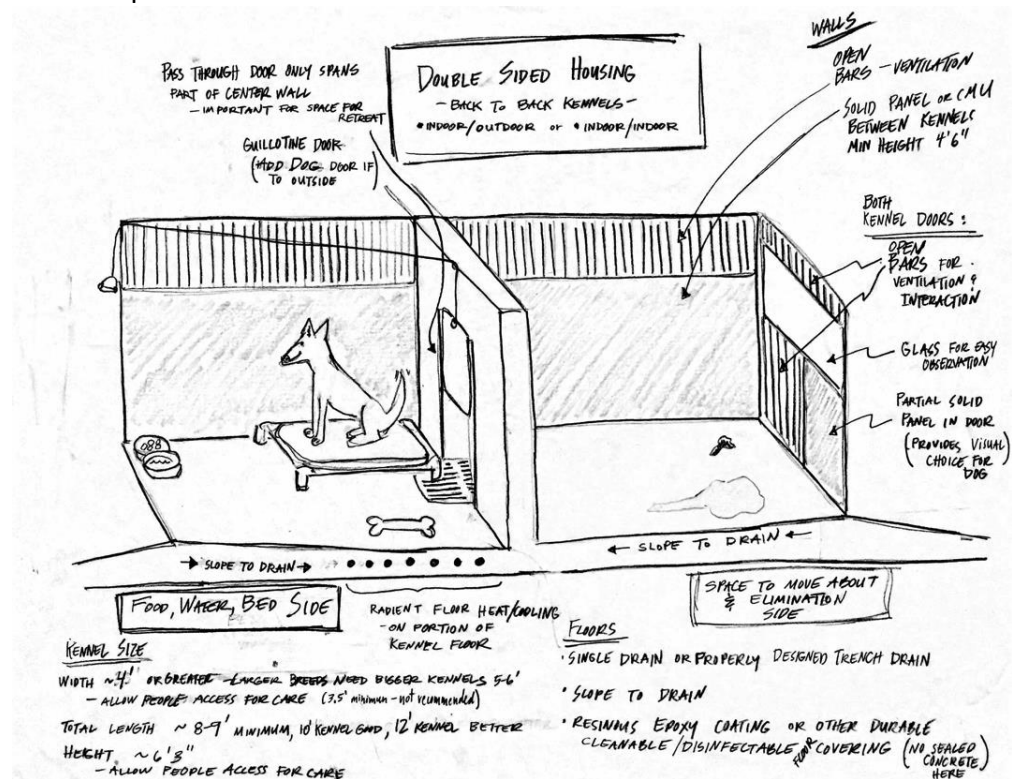 DOUBLE SIDED HOUSING
- BACK TO BACK KENNELS -
• INDOOR/OUTDOOR or • INDOOR/INDOOR
PASS THROUGH DOOR ONLY SPANS
PART OF CENTER WALL
- IMPORTANT FOR SPACE FOR
RETREAT
GUILLOTINE DOOR
(ADD DOG DOOR IF
TO OUTSIDE)
WALLS
OPEN
BARS - VENTILATION
SOLID PANEL OR CMU
BETWEEN KENNELS
MIN HEIGHT 4'6"
BOTH
KENNEL DOORS:
OPEN
BARS FOR
VENTILATION &
INTERACTION
GLASS FOR EASY
OBSERVATION
PARTIAL SOLID
PANEL IN DOOR
(PROVIDES VISUAL
CHOICE FOR
DOG)
→ SLOPE TO DRAIN →
← SLOPE TO DRAIN ←
FOOD, WATER, BED SIDE
RADIENT FLOOR HEAT/COOLING
- ON PORTION OF
KENNEL FLOOR
SPACE TO MOVE ABOUT
& ELIMINATION
SIDE
KENNEL SIZE
WIDTH ~4' OR GREATER - LARGER BREEDS NEED BIGGER KENNELS 5-6'
- ALLOW PEOPLE ACCESS FOR CARE (3.5' minimum - not recommended)
TOTAL LENGTH ~ 8-9' MINIMUM, 10' KENNEL GOOD, 12' KENNEL BETTER
HEIGHT ~ 6'8"
- ALLOW PEOPLE ACCESS FOR CARE
FLOORS
• SINGLE DRAIN OR PROPERLY DESIGNED TRENCH DRAIN
• SLOPE TO DRAIN
• RESINOUS EPOXY COATING OR OTHER DURABLE
CLEANABLE/DISINFECTABLE FLOOR COVERING (NO SEALED
CONCRETE
HERE)